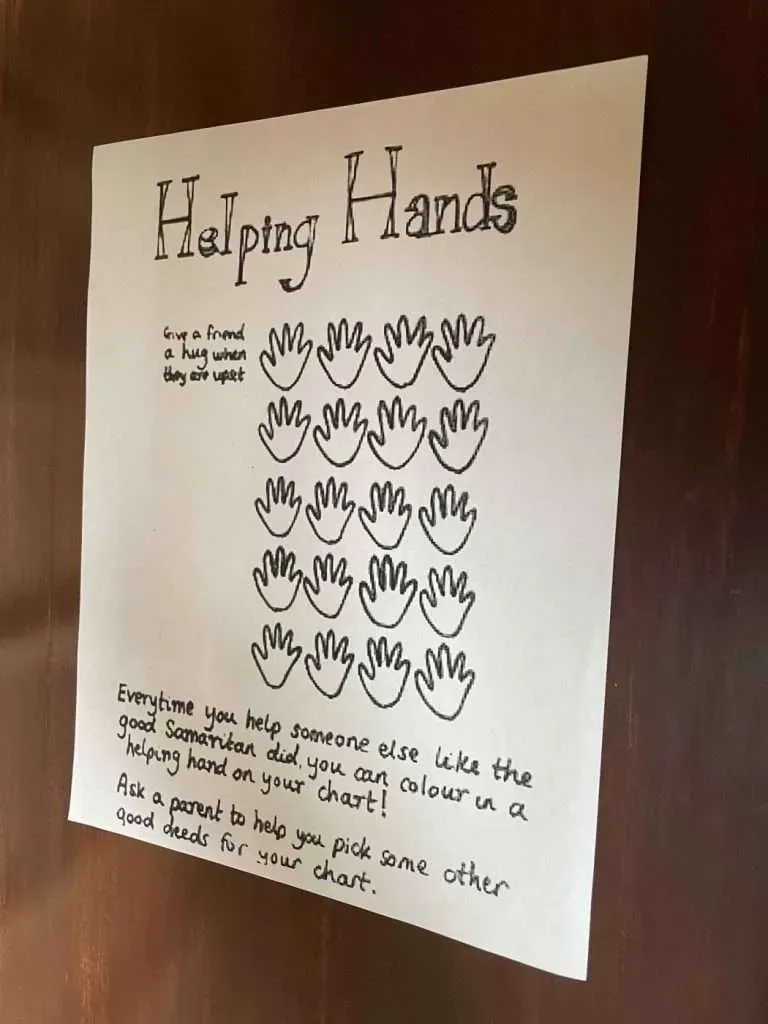 Helping Hands
Give a friend
a hug when
they are upset
Everytime you help someone else like the
good Samaritan did, you can colour in a
helping hand on your chart!
Ask a parent to help you pick some other
good deeds for your chart.